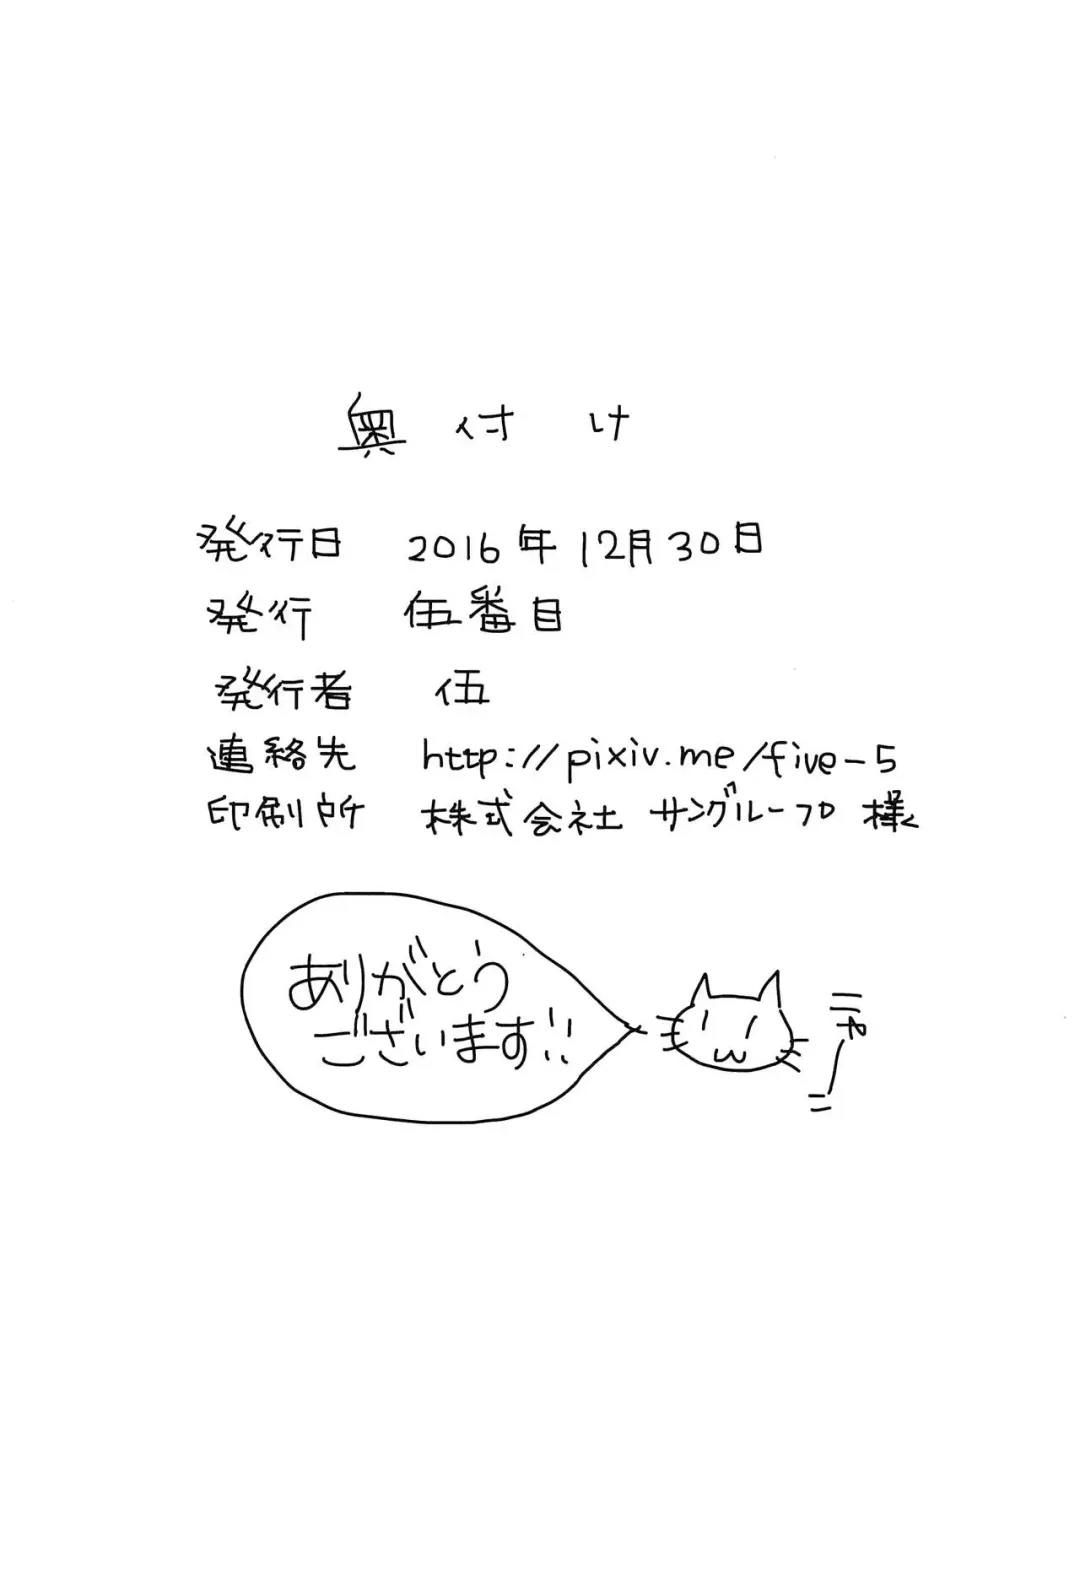 奥付け
発行日 2016年12月30日
発行 伍番目
発行者 伍
連絡先 http://pixiv.me/five-5
印刷所 株式会社 サングループ 様
ありがとう
ございます!!
ニャーン